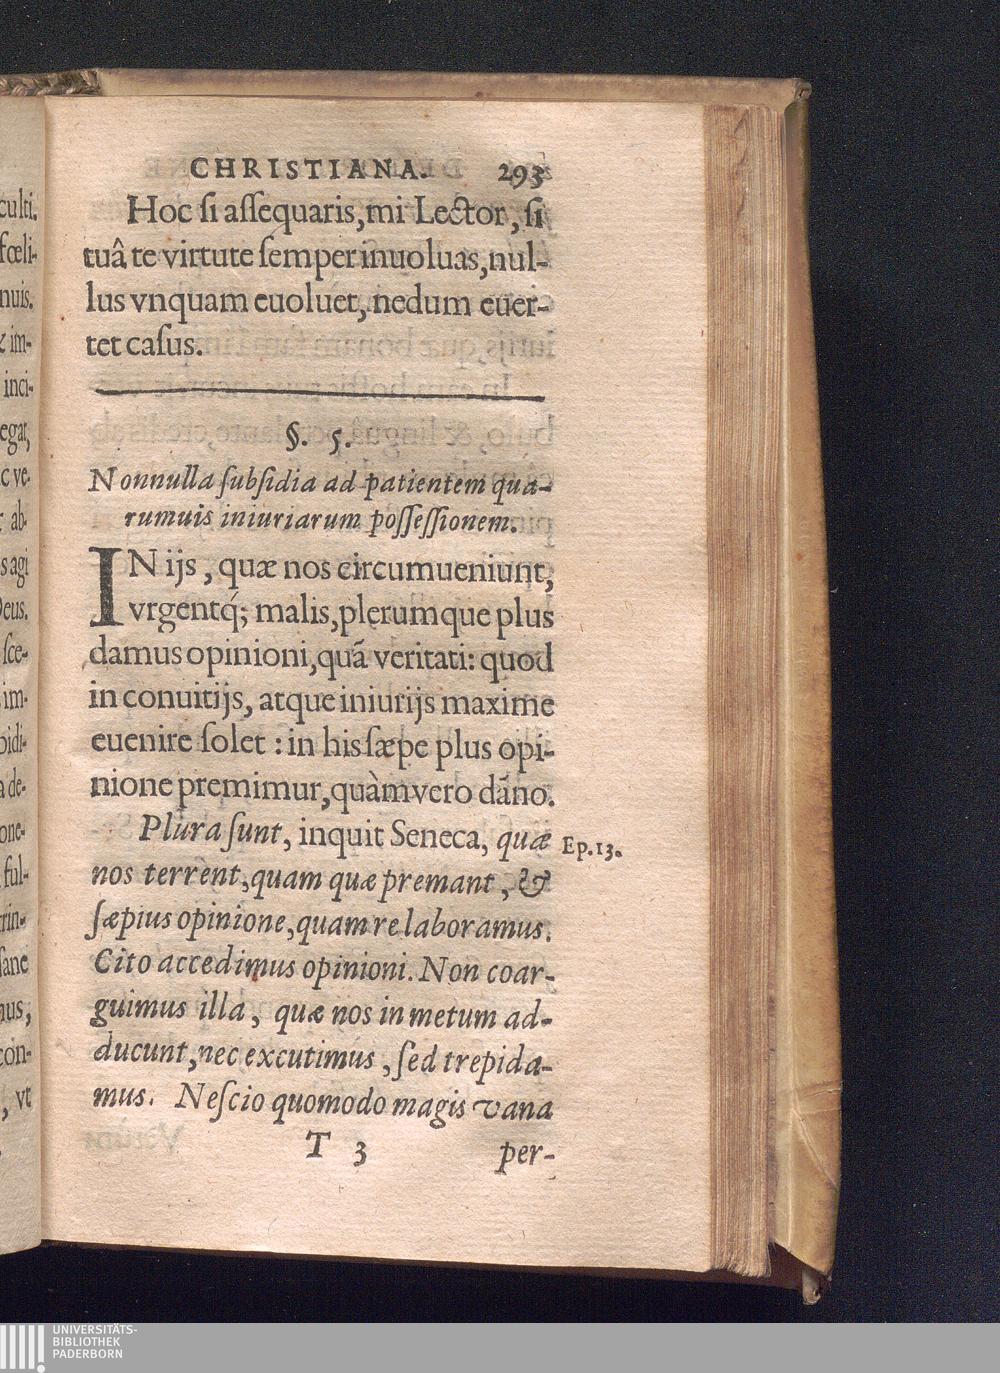 culi.
fœli-
nuis.
& im-
inci-
egat,
c ve-
ab-
s agi
Deus.
sce-
im-
pidi-
a de-
one-
ful-
rin-
sane
nus,
con-
, vt
CHRISTIANA. 293
Hoc si assequaris, mi Lector, si
tuâ te virtute semper inuoluas, nul-
lus vnquam euoluet, nedum euer-
tet casus.
§. 5.
Nonnulla subsidia ad patientem qua-
rumuis iniuriarum possessionem.
IN ijs, quæ nos circumueniunt,
vrgentq́; malis, plerumque plus
damus opinioni, quã veritati: quod
in conuitijs, atque iniurijs maxime
euenire solet: in his sæpe plus opi-
nione premimur, quàm vero dãno.
Plura sunt, inquit Seneca, quæ
Ep. 13.
nos terrent, quam quæ premant, &
sæpius opinione, quam re laboramus.
Cito accedimus opinioni. Non coar-
guimus illa, quæ nos in metum ad-
ducunt, nec excutimus, sed trepida-
mus. Nescio quomodo magis vana
T 3 per-
UNIVERSITÄTS-
BIBLIOTHEK
PADERBORN